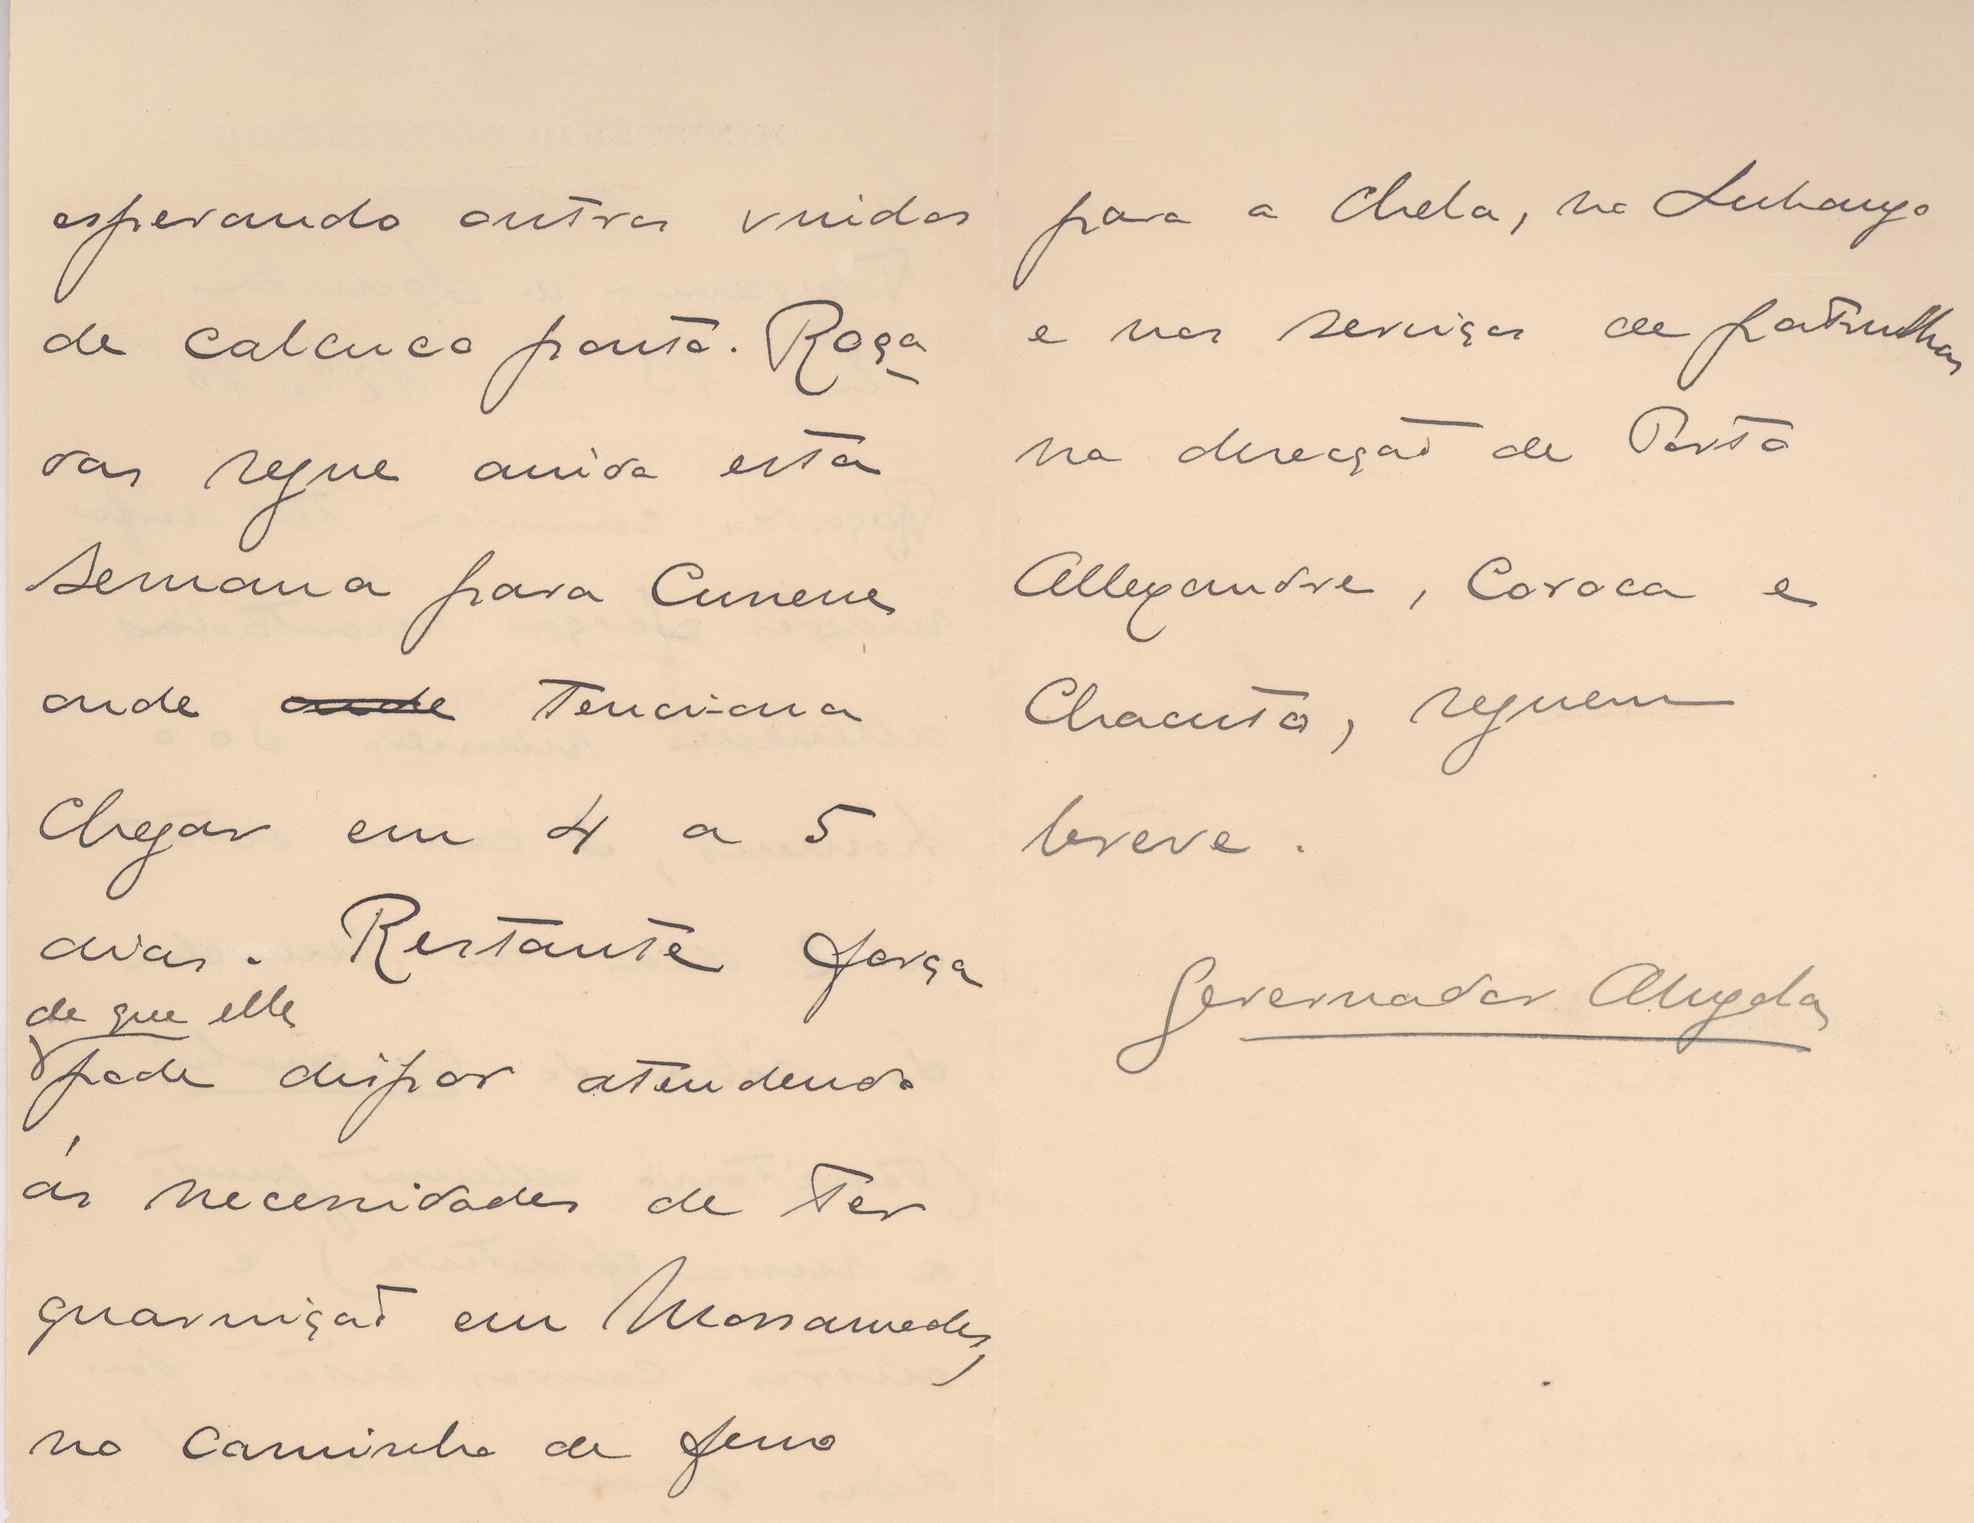 esperando outros vindos
de calcuco ponto. Roça
das segue ainda esta
semana para Cunene
onde onde tenciona
chegar em 4 a 5
dias. Restante força
de que elle
pode dispor atendendo
ás necessidades de ter
guarnição em Mossamedes,
no caminho de ferro
para a Chela, no Lubango
e nos serviços de patrulhas
na direcção de Porto
Allexandre, Coroca e
Chacuto, seguem
breve.
Governador Angola